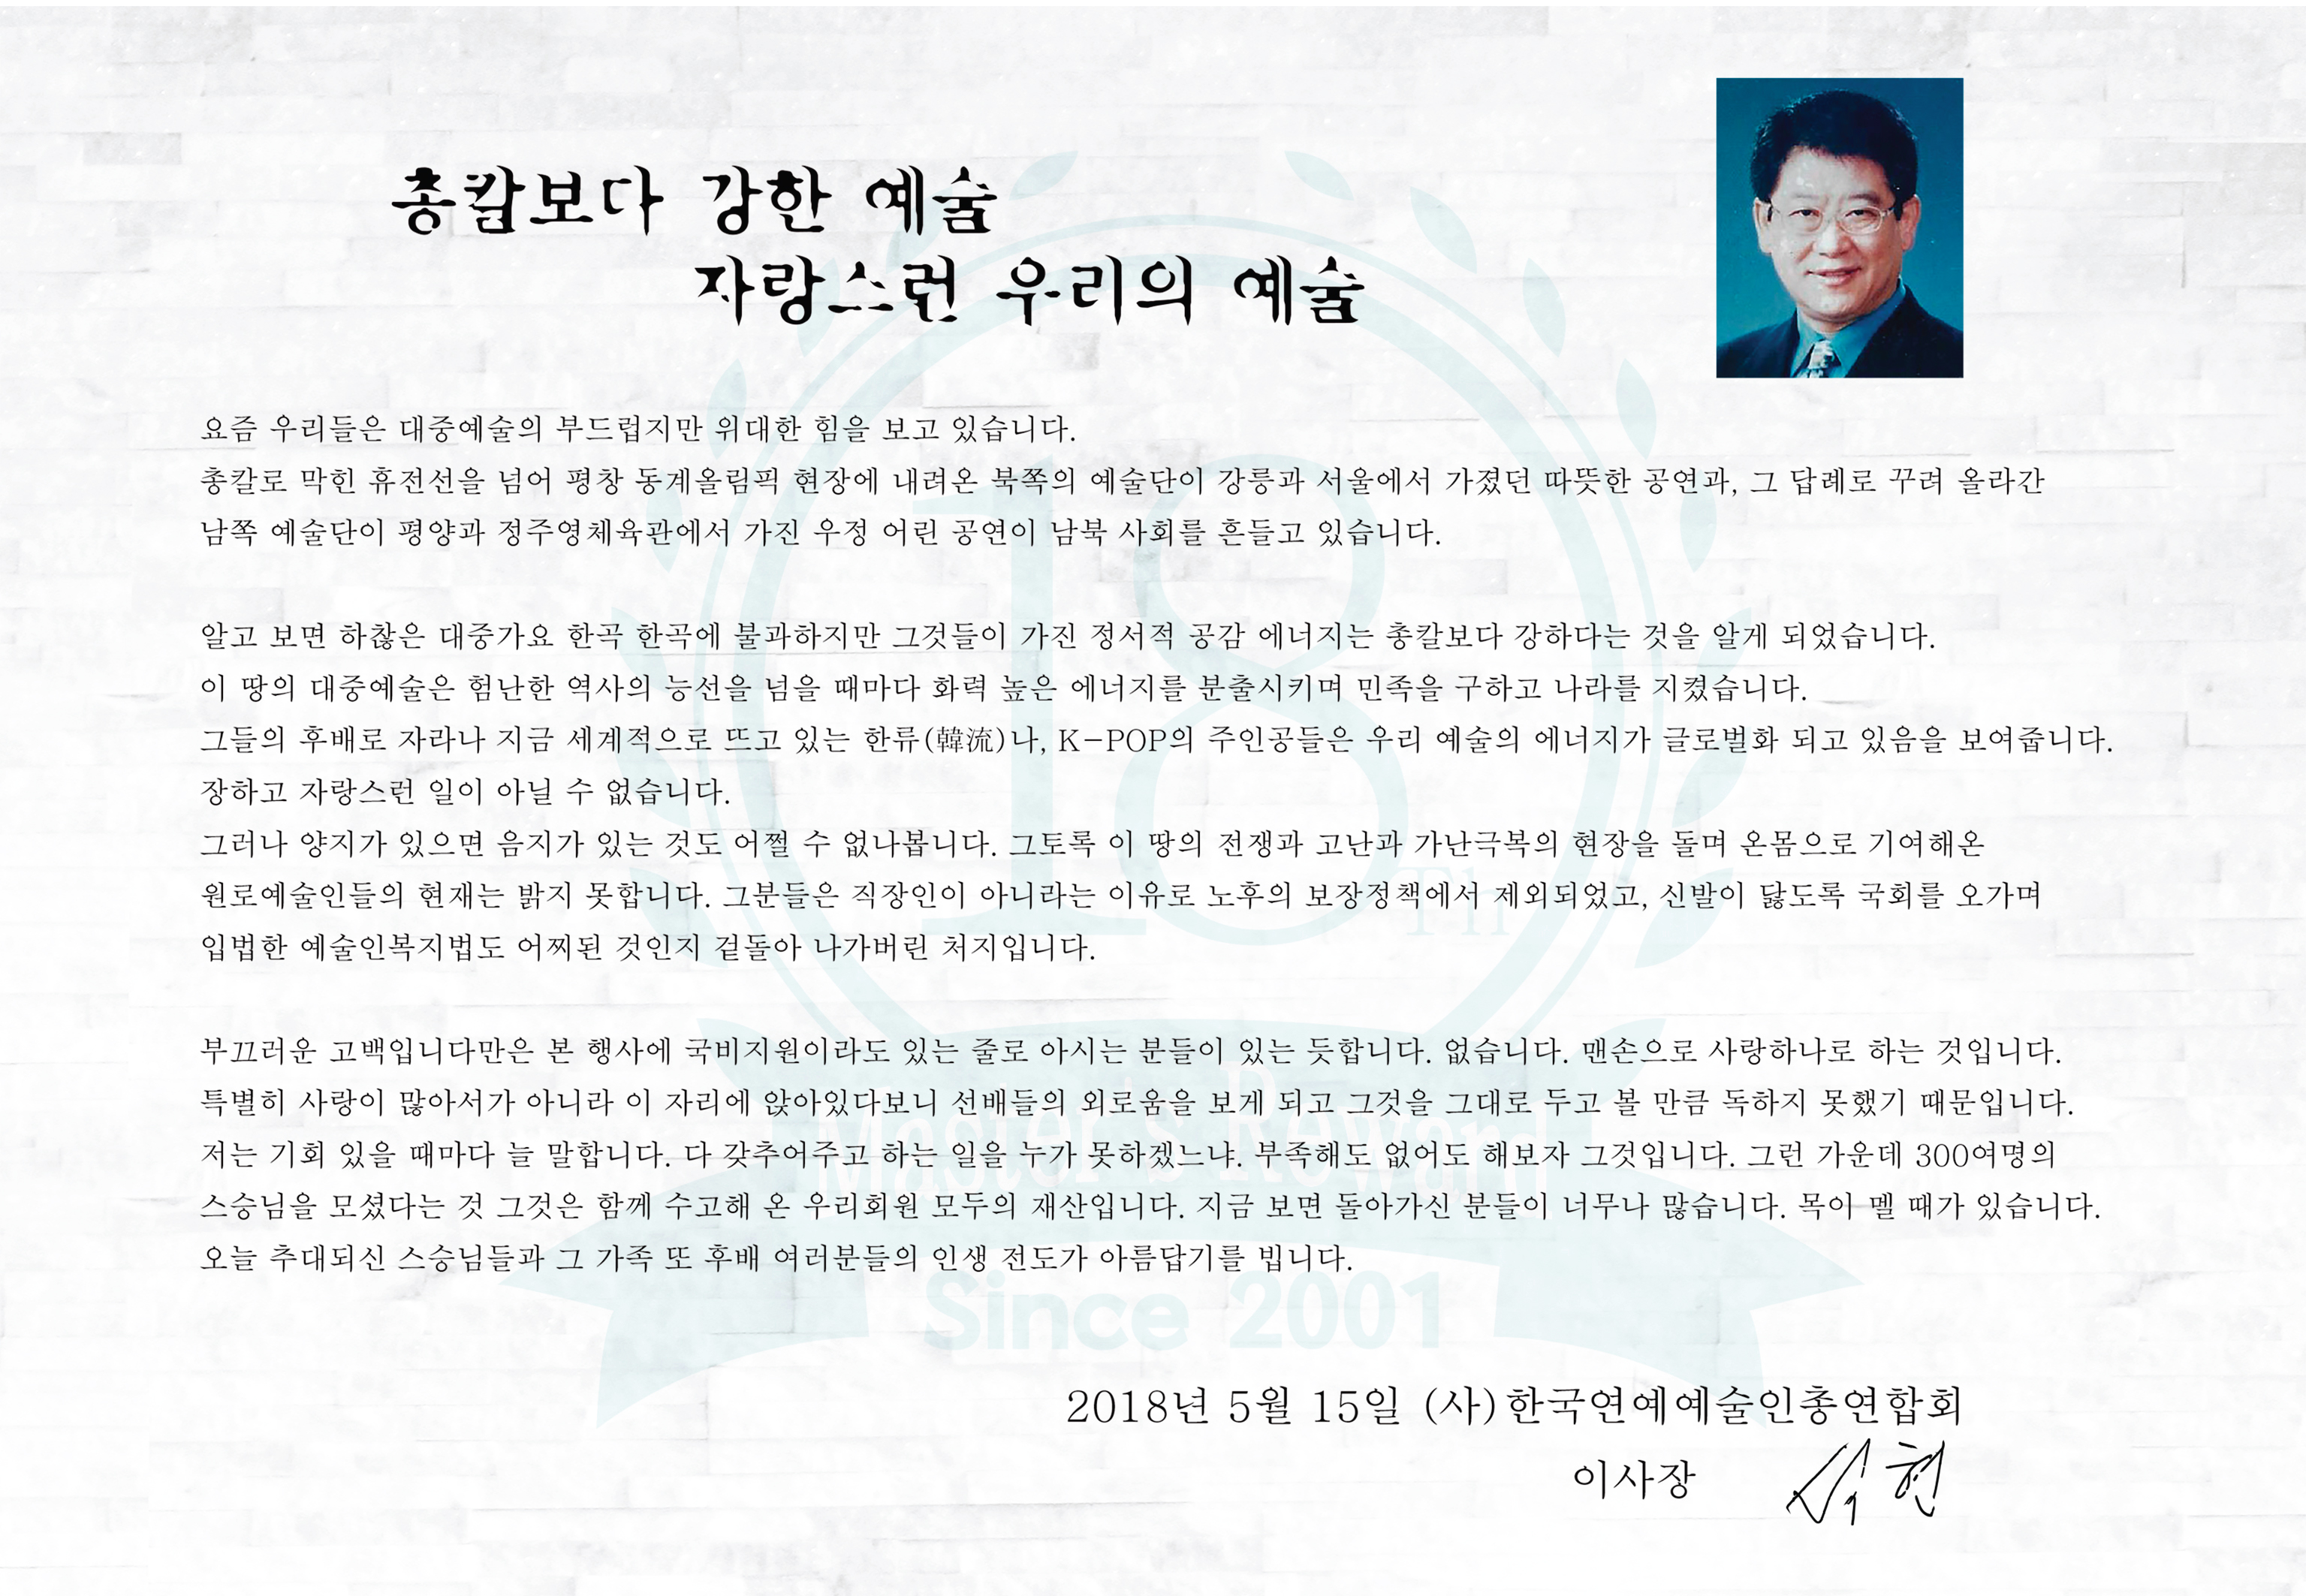 총칼보다 강한 예술
자랑스런 우리의 예술
요즘 우리들은 대중예술의 부드럽지만 위대한 힘을 보고 있습니다.
총칼로 막힌 휴전선을 넘어 평창 동계올림픽 현장에 내려온 북쪽의 예술단이 강릉과 서울에서 가졌던 따뜻한 공연과, 그 답례로 꾸려 올라간
남쪽 예술단이 평양과 정주영체육관에서 가진 우정 어린 공연이 남북 사회를 흔들고 있습니다.
알고 보면 하찮은 대중가요 한곡 한곡에 불과하지만 그것들이 가진 정서적 공감 에너지는 총칼보다 강하다는 것을 알게 되었습니다.
이 땅의 대중예술은 험난한 역사의 능선을 넘을 때마다 화력 높은 에너지를 분출시키며 민족을 구하고 나라를 지켰습니다.
그들의 후배로 자라나 지금 세계적으로 뜨고 있는 한류(韓流)나, K-POP의 주인공들은 우리 예술의 에너지가 글로벌화 되고 있음을 보여줍니다.
장하고 자랑스런 일이 아닐 수 없습니다.
그러나 양지가 있으면 음지가 있는 것도 어쩔 수 없나봅니다. 그토록 이 땅의 전쟁과 고난과 가난극복의 현장을 돌며 온몸으로 기여해온
원로예술인들의 현재는 밝지 못합니다. 그분들은 직장인이 아니라는 이유로 노후의 보장정책에서 제외되었고, 신발이 닳도록 국회를 오가며
입법한 예술인복지법도 어찌된 것인지 겉돌아 나가버린 처지입니다.
부끄러운 고백입니다만은 본 행사에 국비지원이라도 있는 줄로 아시는 분들이 있는 듯합니다. 없습니다. 맨손으로 사랑하나로 하는 것입니다.
특별히 사랑이 많아서가 아니라 이 자리에 앉아있다보니 선배들의 외로움을 보게 되고 그것을 그대로 두고 볼 만큼 독하지 못했기 때문입니다.
저는 기회 있을 때마다 늘 말합니다. 다 갖추어주고 하는 일을 누가 못하겠느냐. 부족해도 없어도 해보자 그것입니다. 그런 가운데 300여명의
스승님을 모셨다는 것 그것은 함께 수고해 온 우리회원 모두의 재산입니다. 지금 보면 돌아가신 분들이 너무나 많습니다. 목이 멜 때가 있습니다.
오늘 추대되신 스승님들과 그 가족 또 후배 여러분들의 인생 전도가 아름답기를 빕니다.
18Th
Master's Reward
Since 2001
2018년 5월 15일 (사)한국연예예술인총연합회
이사장 석현